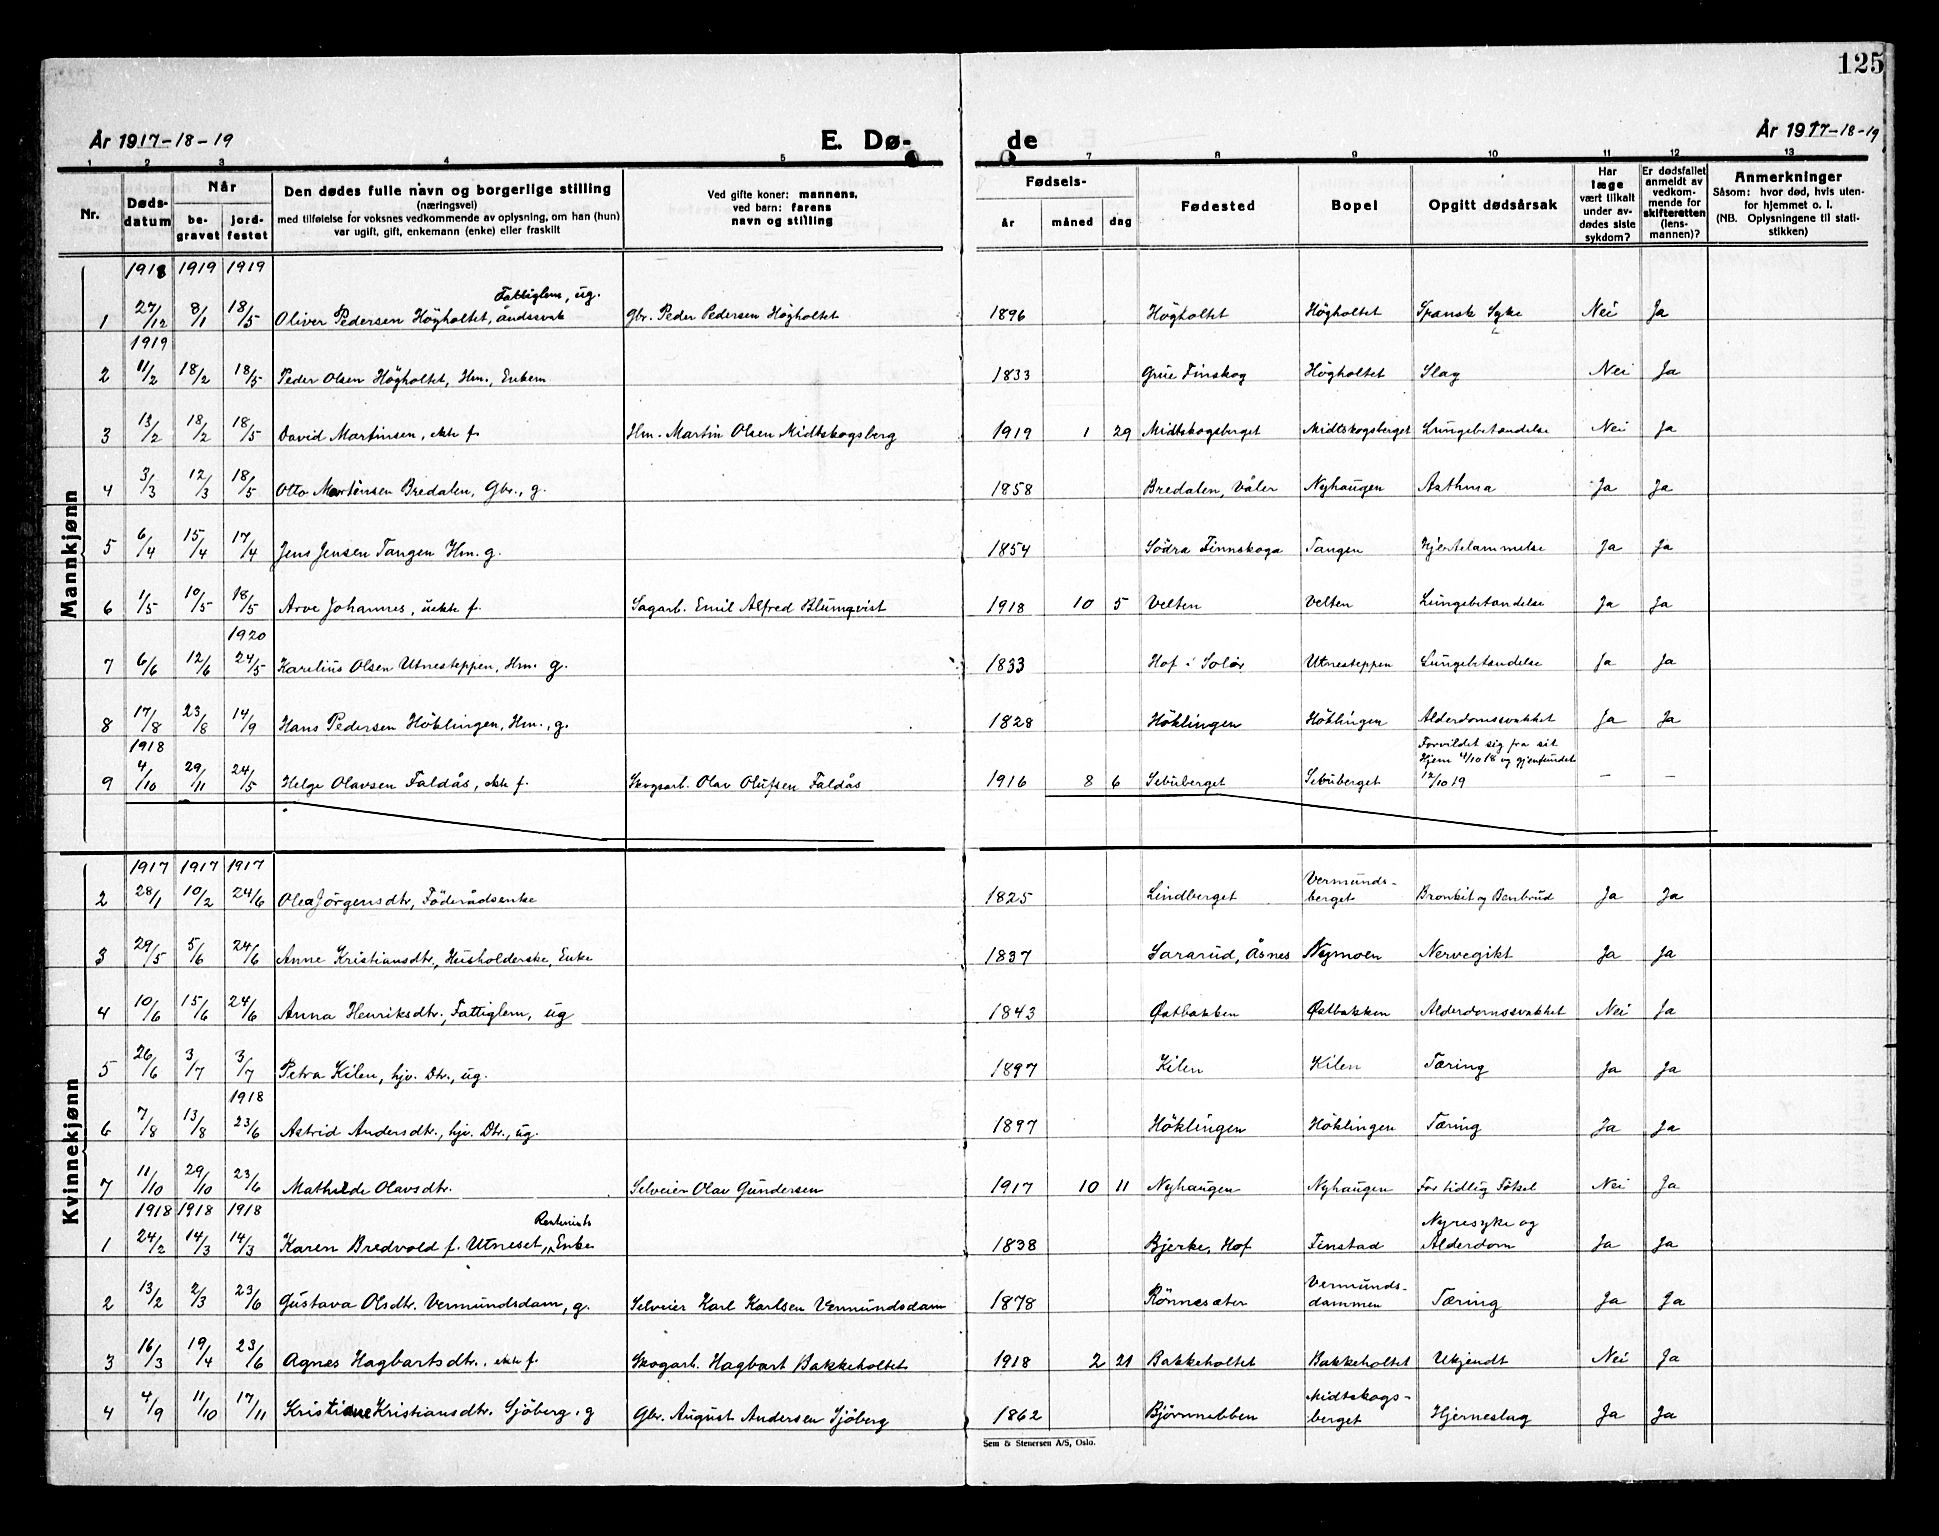 125
År 1917-18-19 E. Dø- de År 1917-18-19
1 2 3 4 5 7 8 9 10 11 12 13
Nr. Døds-datum Når be-gravet jord-festet Den dødes fulle navn og borgerlige stilling (næringsvei) med tilføielse for voksnes vedkommende av oplysning, om han (hun) var ugift, gift, enkemann (enke) eller fraskilt Ved gifte koner: mannens, ved barn: farens navn og stilling Fødsels- år måned dag Fødested Bopel Opgitt dødsårsak Har læge vært tilkalt under av-dødes siste sykdom? Er dødsfallet anmeldt av vedkom-mende for skifteretten (lens-mannen)? Anmerkninger Såsom: hvor død, hvis uten-for hjemmet o. l. (NB. Oplysningene til stati-stikken)
Mannkjønn
1918 1919 1919
1 27/12 8/1 18/5 Oliver Pedersen Högholtet, Fattiglem, ug. åndssvak Gbr. Peder Pedersen Högholtet 1896 Högholtet Högholtet Spansk Syke Nei Ja
1919
2 11/2 18/2 18/5 Peder Olsen Högholtet, Hm., Enkem 1833 Grue Finskog Högholtet Slag Nei Ja
3 13/2 18/2 18/5 David Martinsen, ekte f. Hm. Martin Olsen Midtskogsberg 1919 1 29 Midtskogsberget Midtskogsberget Lungebetændelse Nei Ja
4 3/3 12/3 18/5 Otto Mortensen Bredalen, Gbr., g. 1858 Bredalen, Våler Nyhaugen Asthma Ja Ja
5 6/4 15/4 17/4 Jens Jensen Tangen Hm. g. 1854 Södra Finnskoga Tangen Hjertelammelse Ja Ja
6 1/5 10/5 18/5 Arve Johannes, uekte f. Sagarb. Emil Alfred Blumqvist 1918 10 5 Velten Velten Lungebetændelse Ja Ja
1920
7 6/6 12/6 24/5 Karelius Olsen Utnesteppen, Hm. g. 1833 Hof i Solör Utnesteppen Lungebetændelse Ja Ja
8 17/8 23/8 14/9 Hans Pedersen Höklingen, Hm., g. 1828 Höklingen Höklingen Alderdomssvakhet Ja Ja
1918
9 4/10 29/11 24/5 Helge Olavsen Faldås, ekte f. Skogsarb. Olav Olufsen Faldås 1916 8 6 Sebuberget Sebuberget Forvildet sig fra sit Hjem 4/10 18 og gjenfundet 12/10 19 — —
Kvinnekjønn
1917 1917 1917
2 28/1 10/2 24/6 Olea Jörgensdtr, Föderådsenke 1825 Lindberget Vermunds-berget Bronkit og Benbrud Ja Ja
3 29/5 5/6 24/6 Anne Kristiansdtr., Husholderske, Enke 1837 Sararud, Åsnes Nymoen Nervegikt Ja Ja
4 10/6 15/6 24/6 Anna Henriksdtr., Fattiglem, ug 1843 Østbakken Østbakken Alderdomssvakhet Nei Ja
5 26/6 3/7 3/7 Petra Kilen, hjv. Dtr., ug. 1897 Kilen Kilen Tæring Ja Ja
1918
6 7/8 13/8 23/6 Astrid Andersdtr., hjv. Dtr., ug. 1897 Höklingen Höklingen Tæring Ja Ja
7 11/10 29/10 23/6 Mathilde Olavsdtr. Selveier Olav Gundersen 1917 10 11 Nyhaugen Nyhaugen For tidlig Födsel Nei Ja
1918 1918 1918
1 24/2 14/3 14/3 Karen Bredvold f. Utneset, Rentenists Enke 1838 Bjerke, Hof Finstad Nyresyke og Alderdom Ja Ja
2 13/2 2/3 23/6 Gustava Olsdtr. Vermundsdam, g. Selveier Karl Karlsen Vermundsdam 1878 Rönnesæter Vermunds-dammen Tæring Ja Ja
3 16/3 19/4 23/6 Agnes Hagbartsdtr., ekte f. Skogarb. Hagbart Bakkeholtet 1918 2 21 Bakkeholtet Bakkeholtet Ukjendt Nei Ja
4 4/9 11/10 17/11 Kristiane Kristiansdtr. Sjöberg, g Gbr. August Andersen Sjöberg 1862 Björnnebben Midtskogs-berget Hjerneslag Ja Ja
Sem & Stenersen A/S, Oslo.